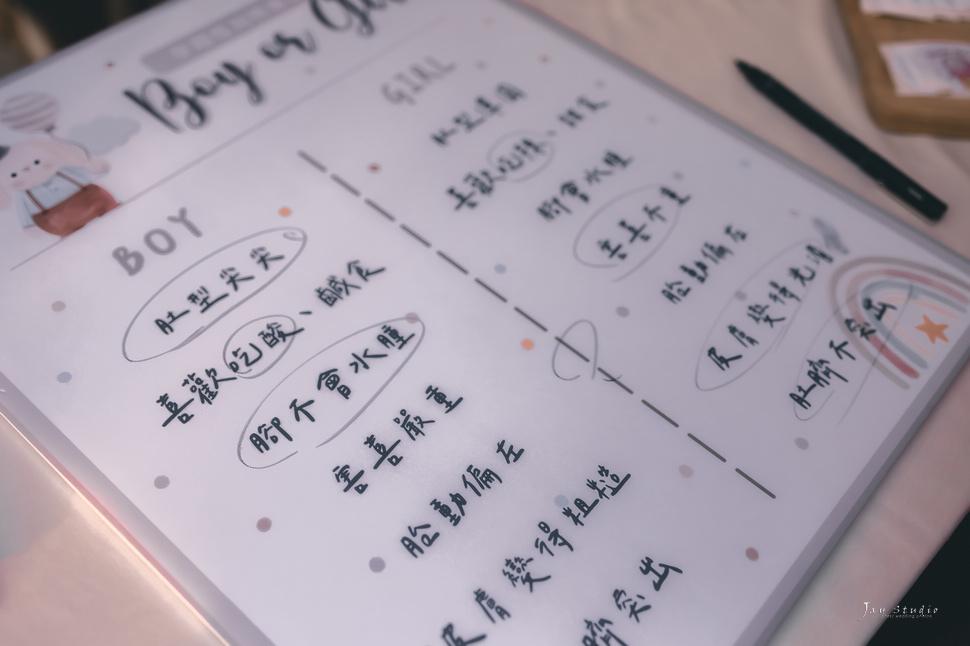 Boy or Girl
BOY
肚型尖尖
喜歡吃酸、鹹食
腳不會水腫
害喜嚴重
胎動偏左
皮膚變得粗糙
臍突出
GIRL
肚型渾圓
喜歡吃辣、甜食
腳會水腫
害喜不重
胎動偏右
皮膚變得光滑
肚臍不突出
Jay Studio